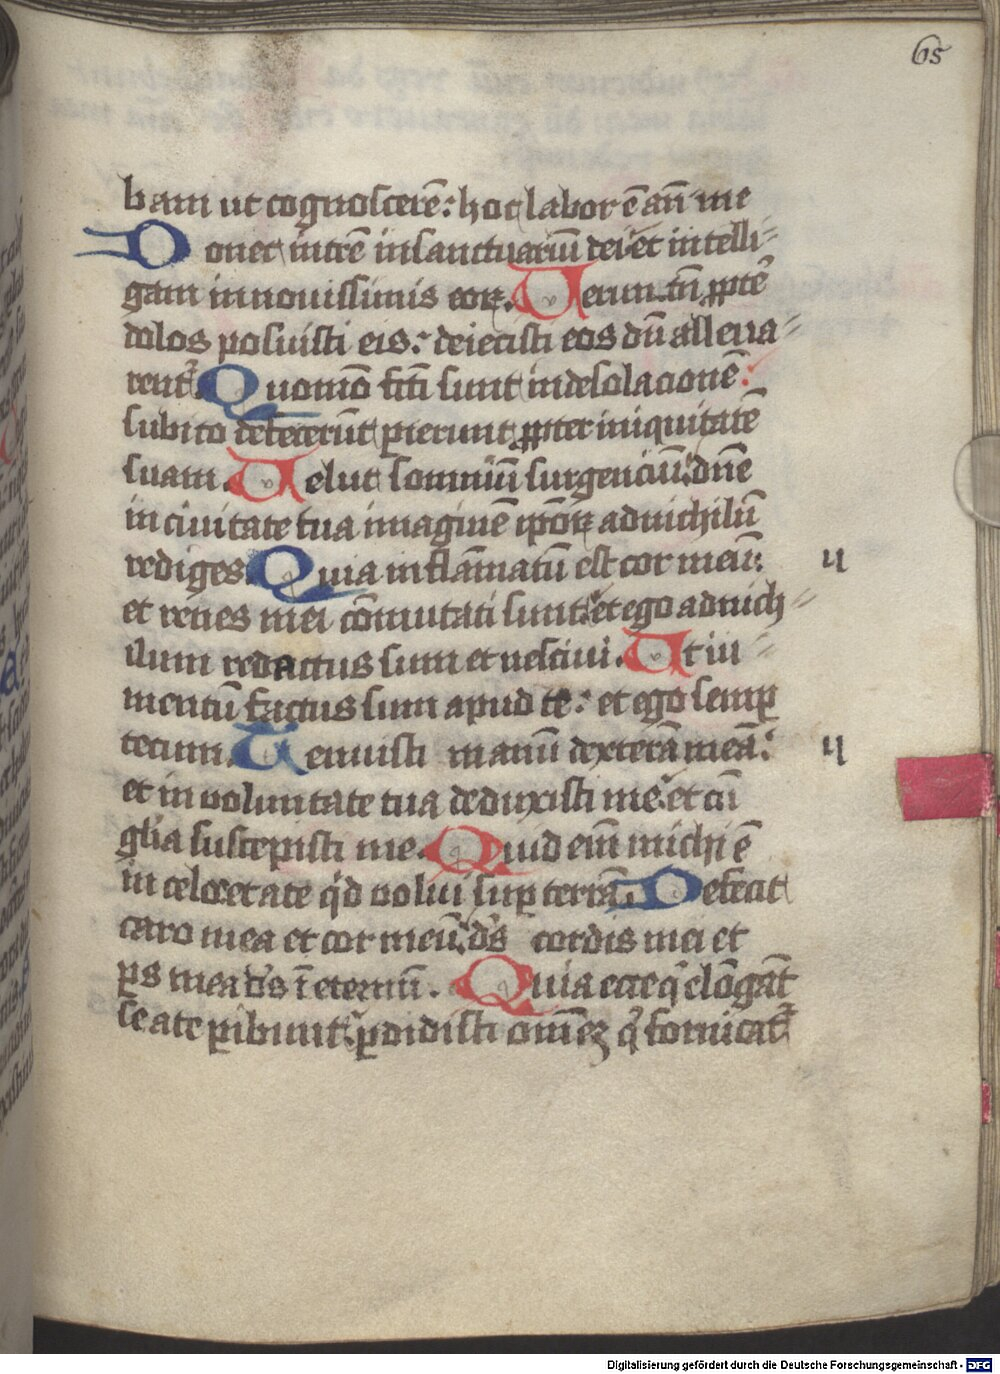 65
bam ut cognoscerē: hoc labor ē an̄ me
Donec intrē in sanctuariū dei et intelli-
gam in novissimis eorꝝ. Verumtn̄ ꝓpt̄
dolos posuisti eis: deiecisti eos dū alleva-
rent᷑. Quomō fc̄ti sunt in desolacionē:
subito defecerūt ꝑierunt ꝓpter iniquitatē
suam. Velut somniū surgenciū: dn̄e
in civitate tua imaginē ip̄orꝝ ad nichilū
rediges. Quia inflāmatū est cor meū:
et renes mei cōmutati sunt: et ego ad nich-
ilum redactus sum et nescivi. Ut iu-
mentū factus sum apud te: et ego semꝑ
tecum. Tenuisti manū dexterā meā:
et in voluntate tua deduxisti me: et cū
gl̄ia suscepisti me. Quid em̄ michi ē
in celo: et a te qd̄ volui suꝑ terrā. Defecit
caro mea et cor meū: ds̄ cordis mei et
ꝑs mea ds̄ ī eternū. Quia ecce q̄ elōgāt
se a te ꝑibunt: ꝑdidisti om̄eꝫ q̄ fornicat᷑
Digitalisierung gefördert durch die Deutsche Forschungsgemeinschaft - DFG